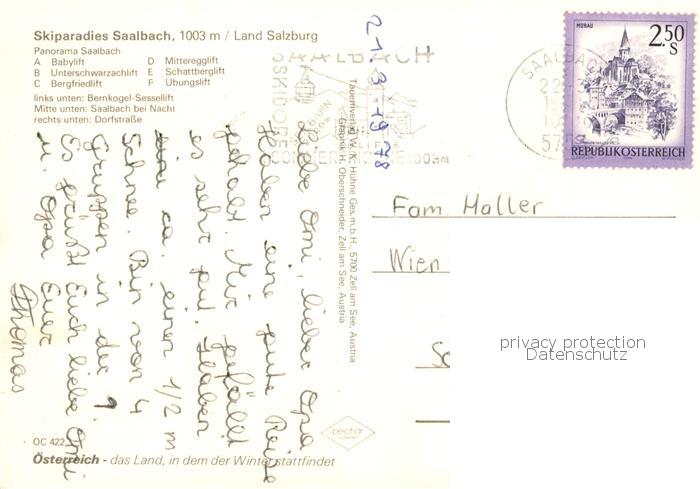 Skiparadies Saalbach, 1003 m / Land Salzburg
Panorama Saalbach
A Babylift D Mitteregglift
B Unterschwarzachlift E Schattberglift
C Bergfriedlift F Übungslift
links unten: Bernkogel-Sessellift
Mitte unten: Saalbach bei Nacht
rechts unten: Dorfstraße
SAALBACH
SKIDORF
21.3.1978
SAALBACH
57
MURAU
2.50
S
REPUBLIK ÖSTERREICH
Tauernverlag W. K. Hühne Ges.m.b.H., 5700 Zell am See, Austria
Graphik H. Oberschneider, Zell am See, Austria
Liebe Omi, lieber Opa
Haben eine gute Reise
gehabt. Mir gefällt
es sehr gut. Haben
ca. einen 1/2 m
Schnee. Bin von 4
Gruppen in der 1.
Es grüßt Euch liebe Omi
u. Opa Euer
Thomas
Fam Haller
Wien
privacy protection
Datenschutz
OC 422
Österreich - das Land, in dem der Winter stattfindet